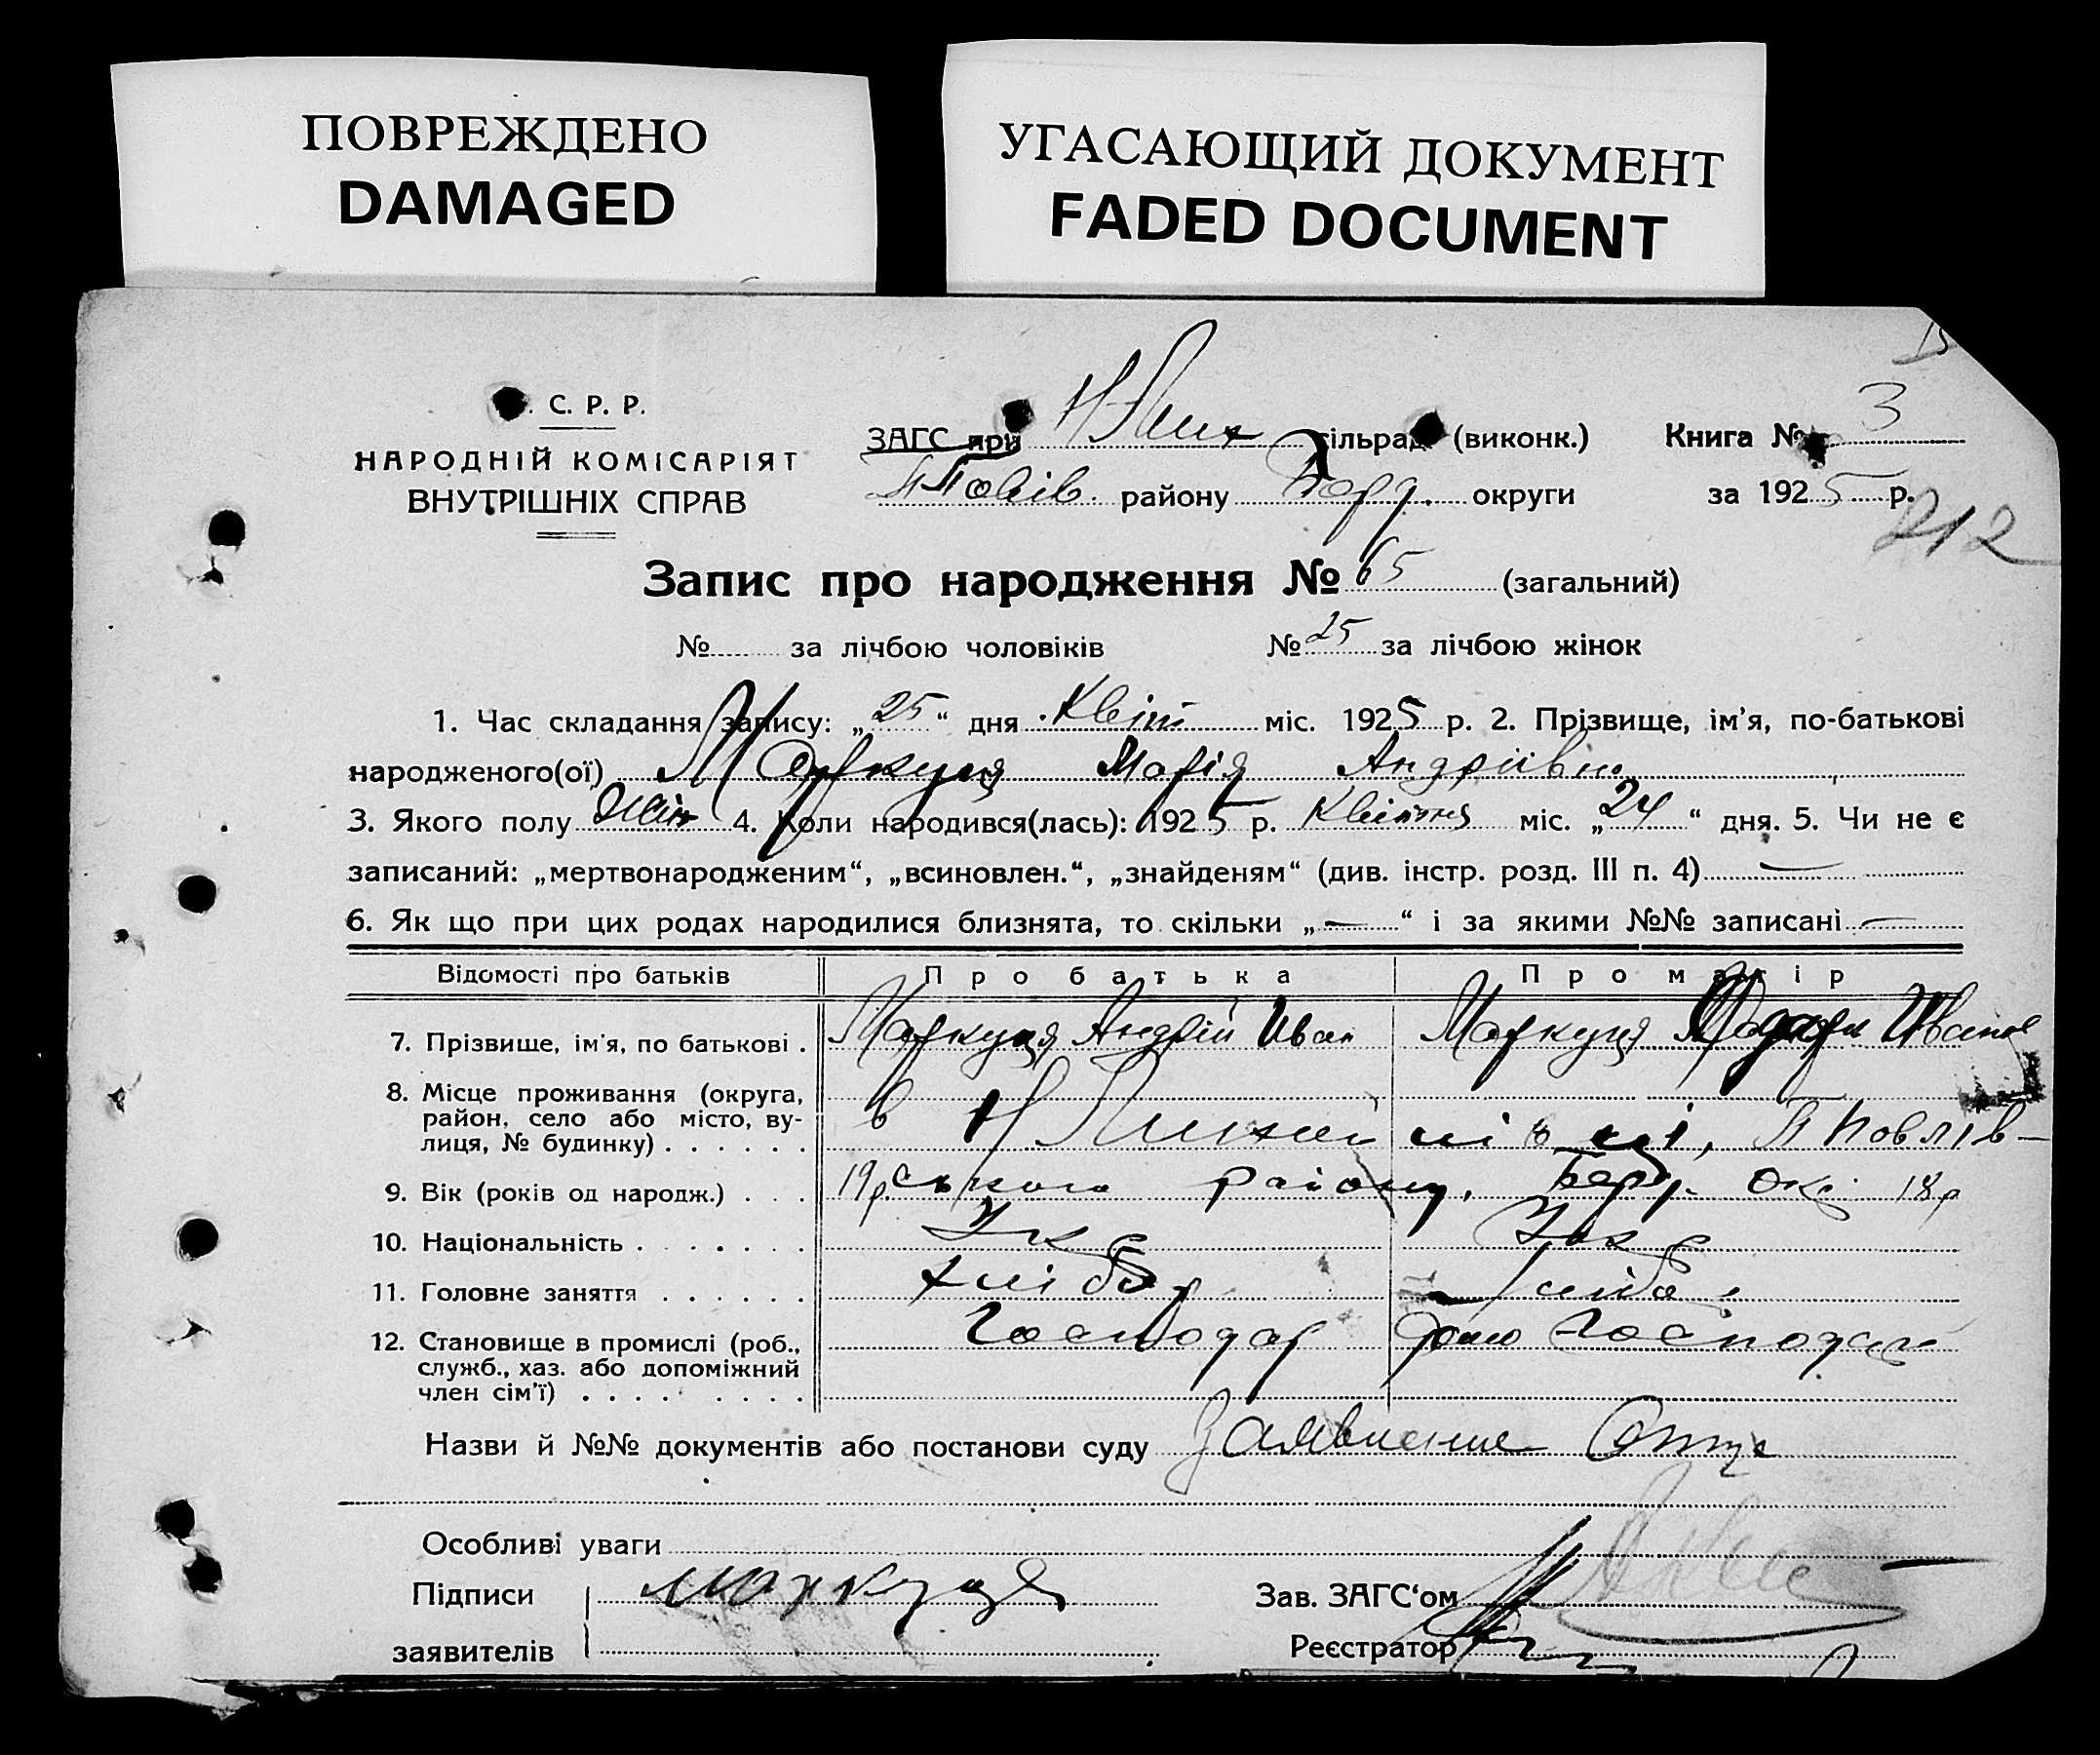 ПОВРЕЖДЕНО
DAMAGED
УГАСАЮЩИЙ ДОКУМЕНТ
FADED DOCUMENT
. С. Р. Р.
НАРОДНІЙ КОМІСАРІЯТ
ВНУТРІШНІХ СПРАВ
ЗАГС при сільрад (виконк.)
району округи
Книга № 3
за 1925 р.
212
Запис про народження № 65 (загальний)
№ за лічбою чоловіків № 25 за лічбою жінок
1. Час складання запису: „25“ дня Квіт міс. 1925 р. 2. Прізвище, ім'я, по-батькові
народженого(ої) Маркуця Марія Андріївна
3. Якого полу жін 4. Коли народився(лась): 1925 р. Квітня міс. „24“ дня. 5. Чи не є
записаний: „мертвонародженим“, „всиновлен.“, „знайденям“ (див. інстр. розд. III п. 4) —
6. Як що при цих родах народилися близнята, то скільки „—“ і за якими №№ записані —
Відомості про батьків Про батька Про матір
7. Прізвище, ім'я, по батькові . Маркуця Андрій Иван Маркуця Иванов
8. Місце проживання (округа,
район, село або місто, ву-
лиця, № будинку) . . . . . . в П Повлів-
9. Вік (років од народж.) . . . 19р ського району, Берд. окр. 18р
10. Національність . . . . . . . Укр Укр
11. Головне заняття . . . . . . хлібор хлібор
12. Становище в промислі (роб.,
служб., хаз. або допоміжний
член сім'ї) . . . . . . . . . Господар Господар
Назви й №№ документів або постанови суду Заявление Отца
Особливі уваги
Підписи
заявителів Маркуця
Зав. ЗАГС‘ом
Реєстратор